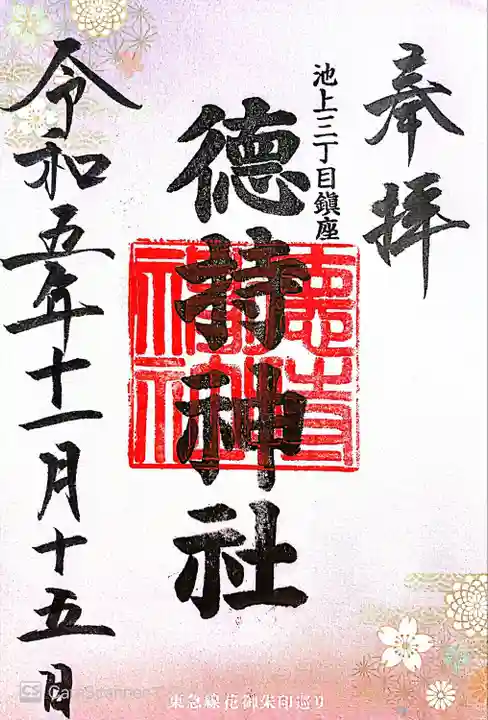 奉拝
池上三丁目鎮座
徳持神社
令和五年十一月十五日
東急線花御朱印巡り
CS CamScanner